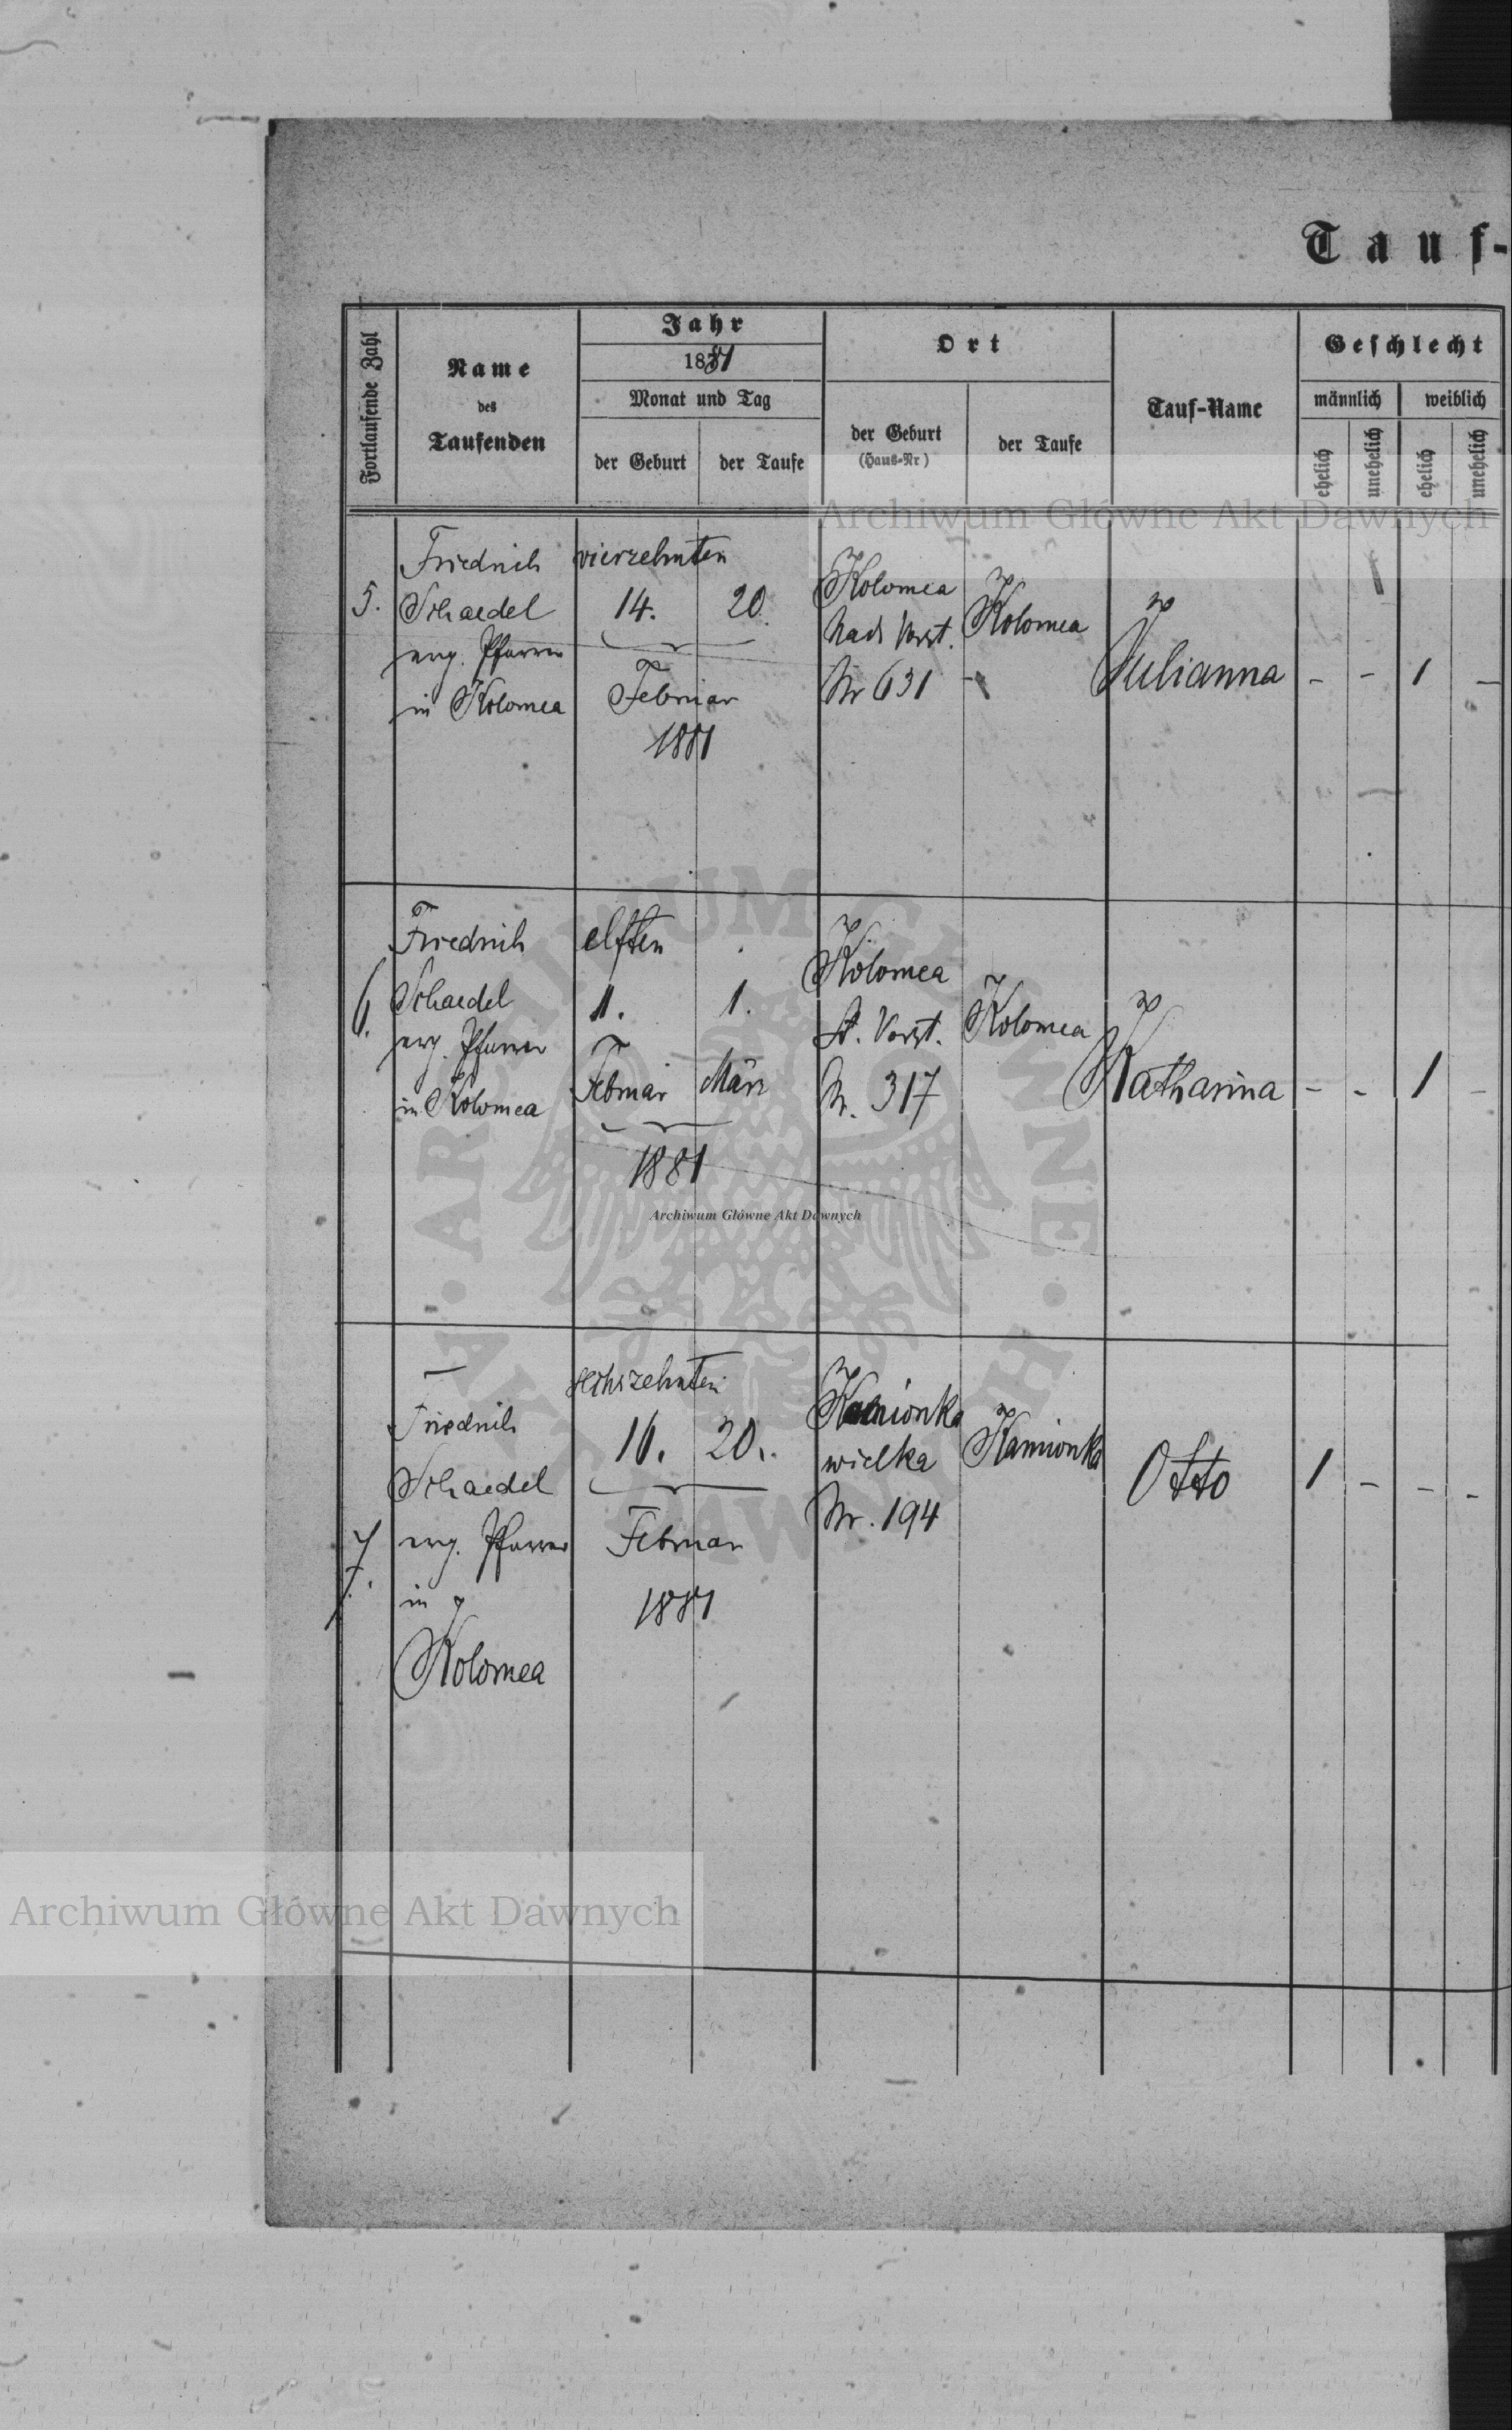 Tauf-
Fortlaufende Zahl
Name
des
Taufenden
Jahr
1881
Monat und Tag
der Geburt
der Taufe
Ort
der Geburt
(Haus-Nr)
der Taufe
Tauf-Name
Geschlecht
männlich
weiblich
ehelich
unehelich
ehelich
unehelich
Archiwum Główne Akt Dawnych
5.
Friedrich
Schaedel
evg. Pfarrer
in Kolomea
vierzehnten
14. 20.
Februar
1881
Kolomea
Vorst.
Nr 631
Kolomea
Julianna
- - 1 -
6.
Friedrich
Schaedel
evg. Pfarrer
in Kolomea
elften
11. 1.
Februar März
1881
Kolomea
Vorst.
N. 317
Kolomea
Katharina
- - 1 -
Archiwum Główne Akt Dawnych
ARCHIWUM GŁÓWNE AKT DAWNYCH
7.
Friedrich
Schaedel
evg. Pfarrer
in
Kolomea
sechszehnten
16. 20.
Februar
1881
Kamionka
wielka
Nr. 194
Kamionka
Otto
1 - - -
Archiwum Główne Akt Dawnych